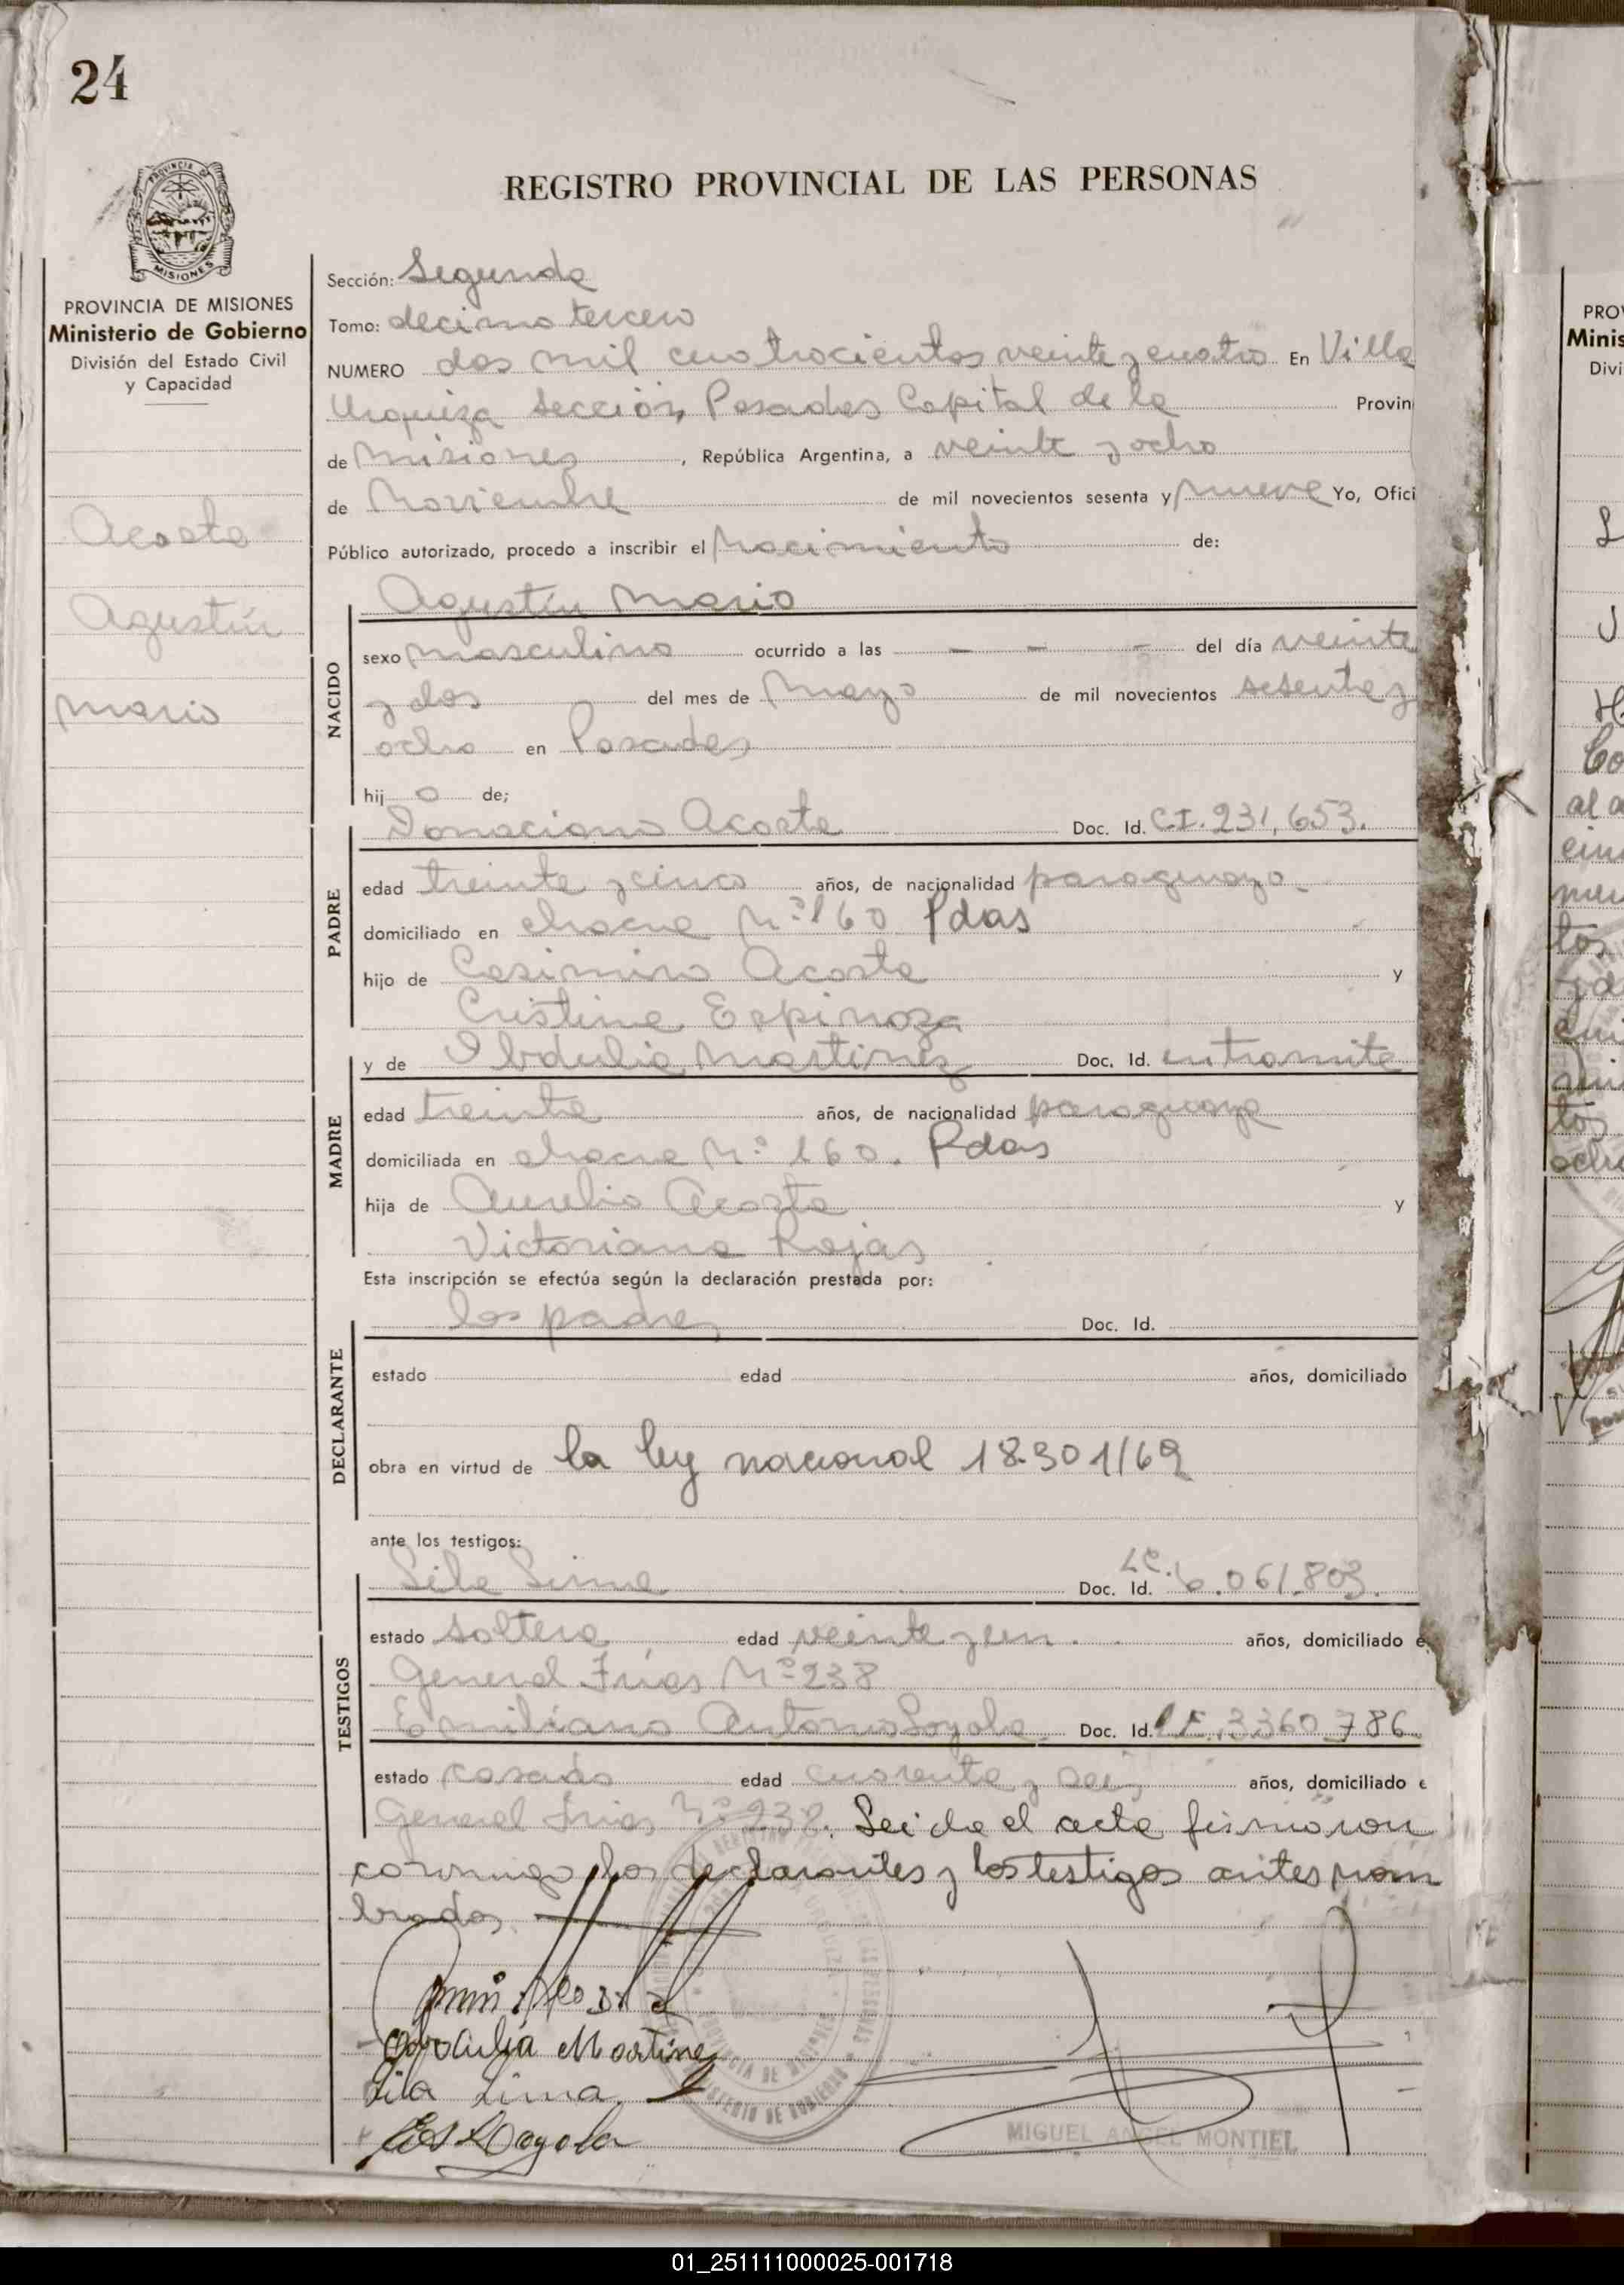 24
REGISTRO PROVINCIAL DE LAS PERSONAS
PROVINCIA DE MISIONES
Ministerio de Gobierno
División del Estado Civil
y Capacidad
Acosta
Agustín
Mario
Sección: Segunda
Tomo: decimo tercero
NUMERO dos mil cuatrocientos veinte y cuatro En Villa
Urquiza Sección, Posadas Capital de la Provin
de Misiones, República Argentina, a veinte y ocho
de Noviembre de mil novecientos sesenta y nueve Yo, Ofici
Público autorizado, procedo a inscribir el Nacimiento de:
Agustín Mario
NACIDO
sexo masculino ocurrido a las - - - del día veinte
y dos del mes de Mayo de mil novecientos sesenta y
ocho en Posadas
hij o de;
Donaciano Acosta Doc. Id. C.I. 231,653.
PADRE
edad treinta y cinco años, de nacionalidad paraguayo
domiciliado en chacra Nº 160 Pdas
hijo de Casimiro Acosta y
Cristina Espinoza
y de Obdulia Martinez Doc. Id. en tramite
MADRE
edad treinta años, de nacionalidad paraguaya
domiciliada en chacra Nº 160. Pdas
hija de Aurelio Acosta y
Victoriana Rojas
Esta inscripción se efectúa según la declaración prestada por:
los padres Doc. Id.
DECLARANTE
estado edad años, domiciliado
obra en virtud de la ley nacional 18.301/69
ante los testigos:
Lila Lima Doc. Id. LC. 6.061.803.
TESTIGOS
estado soltera edad veinte y un. años, domiciliado e
General Frias Nº 238
Emiliano Antonio Loyola Doc. Id. 3360786
estado casado edad cuarenta y seis años, domiciliado e
General Frias Nº 238. Leida el acta firmaron
conmigo los declarantes y los testigos antes nom
brados.
Obdulia Martinez
Lila Lima
MIGUEL ANGEL MONTIEL
01_251111000025-001718